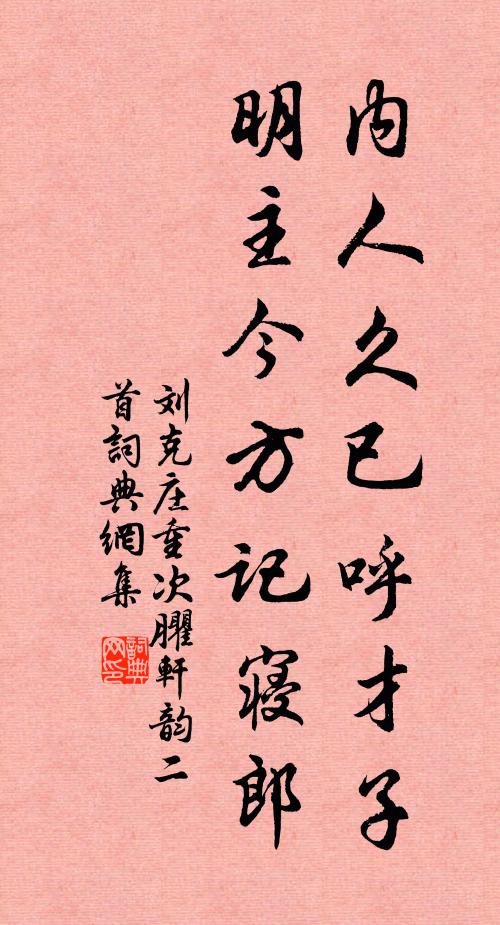 内人久已呼才子
明主今方记寝郎
刘克庄重次臞軒韵二
首詞典網集
詞典
网印